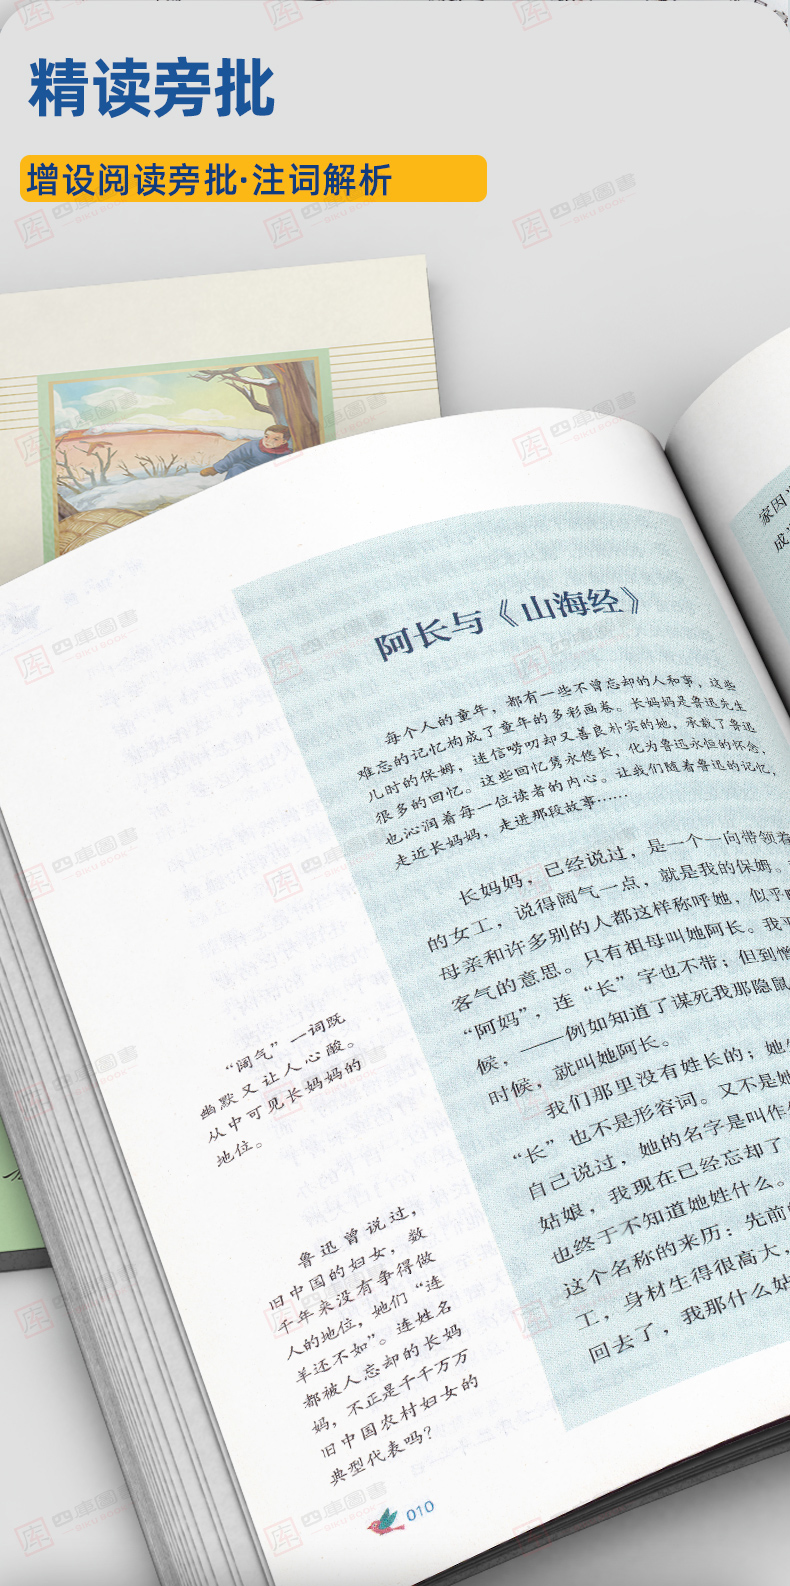 精读旁批
增设阅读旁批·注词解析
阿长与《山海经》
每个人的童年，都有一些不曾忘却的人和事，这些
难忘的记忆构成了童年的多彩画卷。长妈妈是鲁迅先生
儿时的保姆，迷信唠叨却又善良朴实的她，承载了鲁迅
很多的回忆。这些回忆隽永悠长，化为鲁迅永恒的怀念，
也沁润着每一位读者的内心。让我们随着鲁迅的记忆，
走近长妈妈，走进那段故事……
长妈妈，已经说过，是一个一向带领着
的女工，说得阔气一点，就是我的保姆。
母亲和许多别的人都这样称呼她，似乎
客气的意思。只有祖母叫她阿长。我
“阿妈”，连“长”字也不带；但到憎
候，——例如知道了谋死我那隐鼠
时候，就叫她阿长。
我们那里没有姓长的；她
“长”也不是形容词。又不是她
自己说过，她的名字是叫作
姑娘，我现在已经忘却了
也终于不知道她姓什么。
这个名称的来历：先前
工，身材生得很高大，
回去了，我那什么姑
“阔气”一词既
幽默又让人心酸。
从中可见长妈妈的
地位。
鲁迅曾说过，
旧中国的妇女，数
千年来没有争得做
人的地位，她们“连
羊还不如”。连姓名
都被人忘却的长妈
妈，不正是千千万万
旧中国农村妇女的
典型代表吗？
010
家因
成
四库圖書
SIKU BOOK